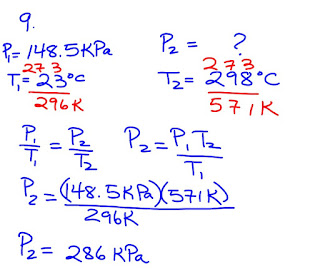 9.
P₁ = 148.5 KPa P₂ = ?
273 273
T₁ = 23°C T₂ = 298°C
296K 571K
P₁/T₁ = P₂/T₂ P₂ = P₁T₂/T₁
P₂ = (148.5KPa)(571K)
296K
P₂ = 286 KPa